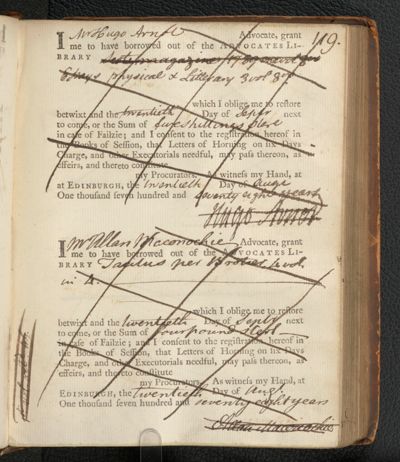 119.
I Mr Hugo Arnot Advocate, grant
me to have borrowed out of the ADVOCATES LI-
BRARY
Essays physical & Literary 3 vol 8vo
which I oblige me to restore
betwixt and the twentieth Day of Septr next
to come, or the Sum of five shillings ster
in case of Failzie; and I consent to the registration hereof in
the Books of Session, that Letters of Horning on six Days
Charge, and other Executorials needful, may pass thereon, as
effeirs, and thereto constitute
my Procurators. As witness my Hand, at
at EDINBURGH, the twentieth Day of Augt
One thousand seven hundred and seventy eight years
Hugo Arnot
I Mr Allan Maconochie Advocate, grant
me to have borrowed out of the ADVOCATES LI-
BRARY Tacitus per Brotier
in 4.
which I oblige me to restore
betwixt and the twentieth Day of Septr next
to come, or the Sum of four pound sterl
in case of Failzie; and I consent to the registration hereof in
the Books of Session, that Letters of Horning on six Days
Charge, and other Executorials needful, may pass thereon, as
effeirs, and thereto constitute
my Procurators. As witness my Hand, at
EDINBURGH, the twentieth Day of Augt
One thousand seven hundred and seventy eight years
Allan Maconochie